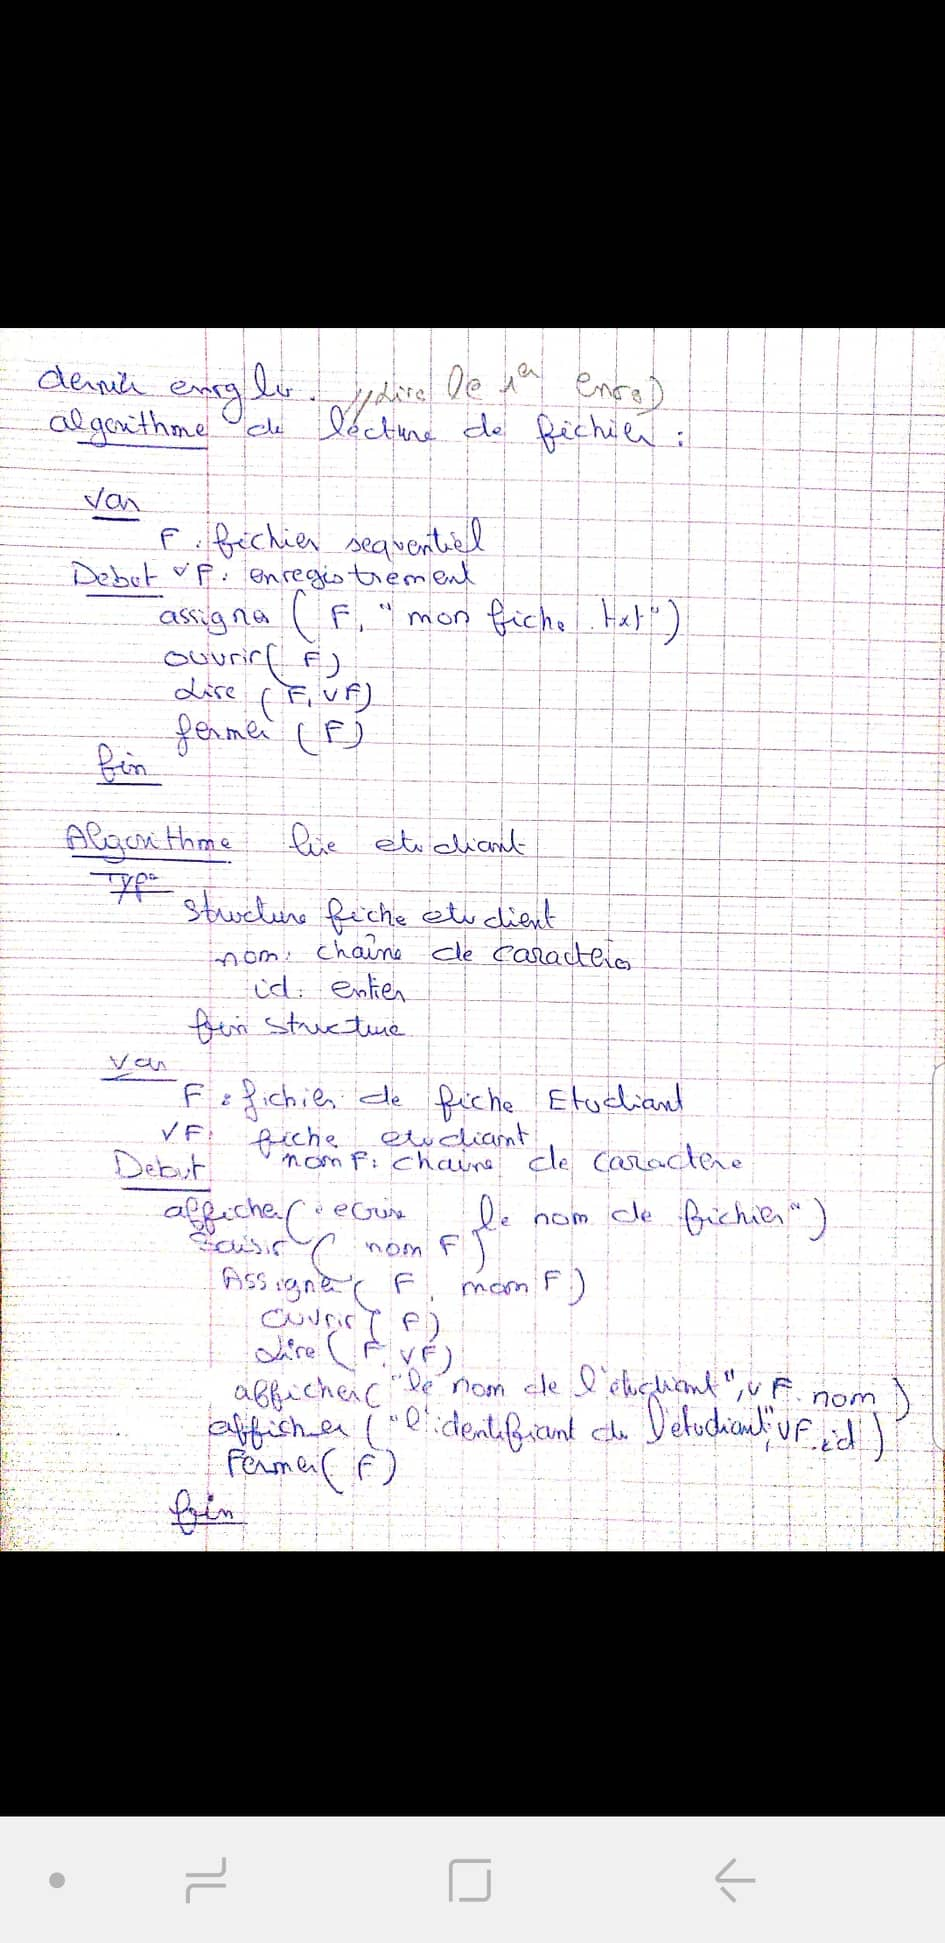 dernier enrg lu. //Lire le 1er enrg)
algorithme de lecture de fichier :
Var
F : fichier sequentiel
Debut VF : enregistrement
assigner ( F, "mon fiche.txt")
ouvrir( F)
Lire (F, VF)
fermer (F)
fin
Algorithme lire etudiant
Type
Structure fiche etudient
nom : chaîne de caractères
id : entier
fin structure
Var
F : fichier de fiche Etudiant
VF : fiche etudiant
Debut nom F : chaine de caractere
afficher ("ecrire le nom de fichier")
Saisir ( nom F)
Assigner ( F, nom F)
Ouvrir ( F)
Lire ( F, VF)
afficher ("le nom de l'etudiant", VF.nom)
afficher ("l'identifiant de l'etudiant", VF.id)
Fermer ( F)
fin